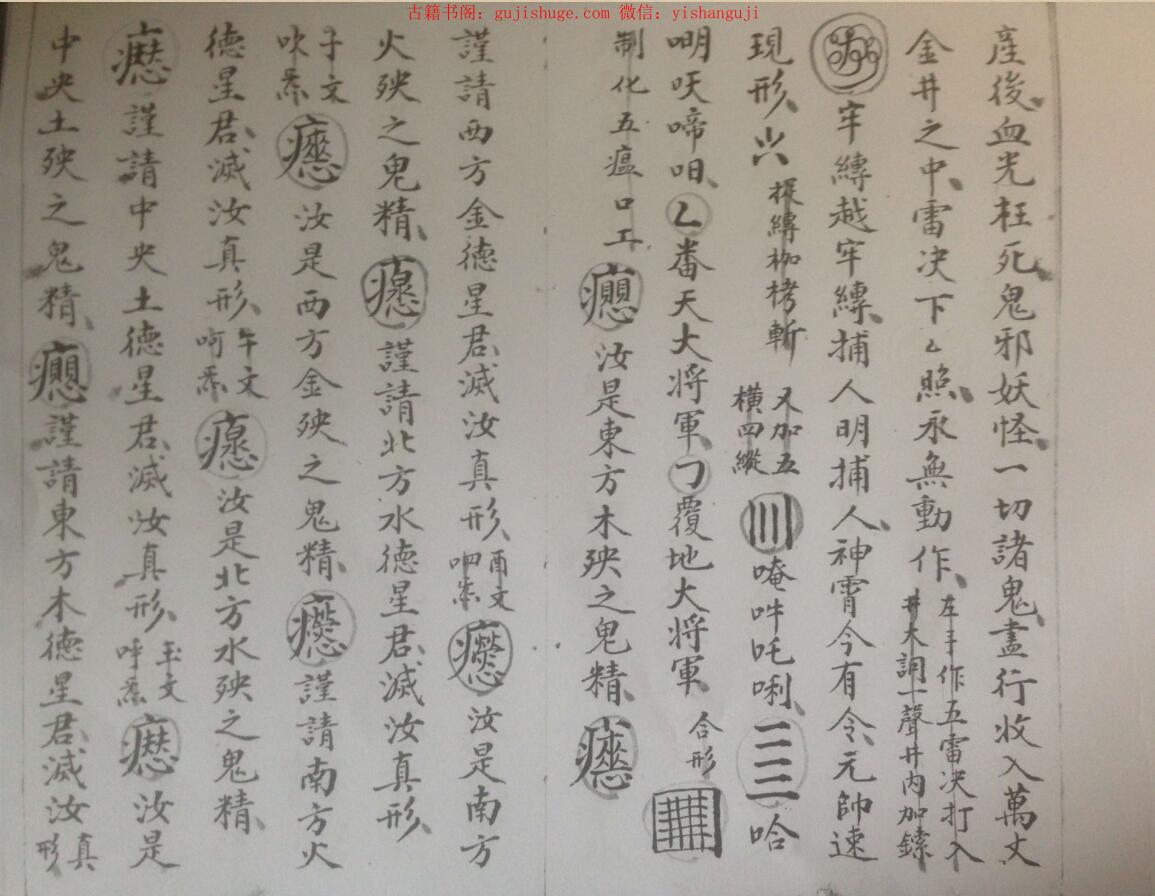 古籍书阁：gujishuge.com 微信：yishanguji
產後血光枉死鬼邪妖怪一切諸鬼盡行收入萬丈
金井之中雷决下照永無動作左手作五雷决打入井大訶一聲井内加鎍
牢縛越牢縛捕人明捕人神霄今有令元帥速
現形捉縛枷栲斬又加五橫四縱唵吽吒唎哈
吽咩啼咱番天大将軍覆地大将軍合形
制化五瘟口工汝是東方木殃之鬼精
謹請西方金德星君滅汝真形酉文呬炁汝是南方
火殃之鬼精謹請北方水德星君滅汝真形
子文吹炁汝是西方金殃之鬼精謹請南方火
德星君滅汝真形午文呵炁汝是北方水殃之鬼精
謹請中央土德星君滅汝真形玉文呼炁汝是
中央土殃之鬼精謹請東方木德星君滅汝真形